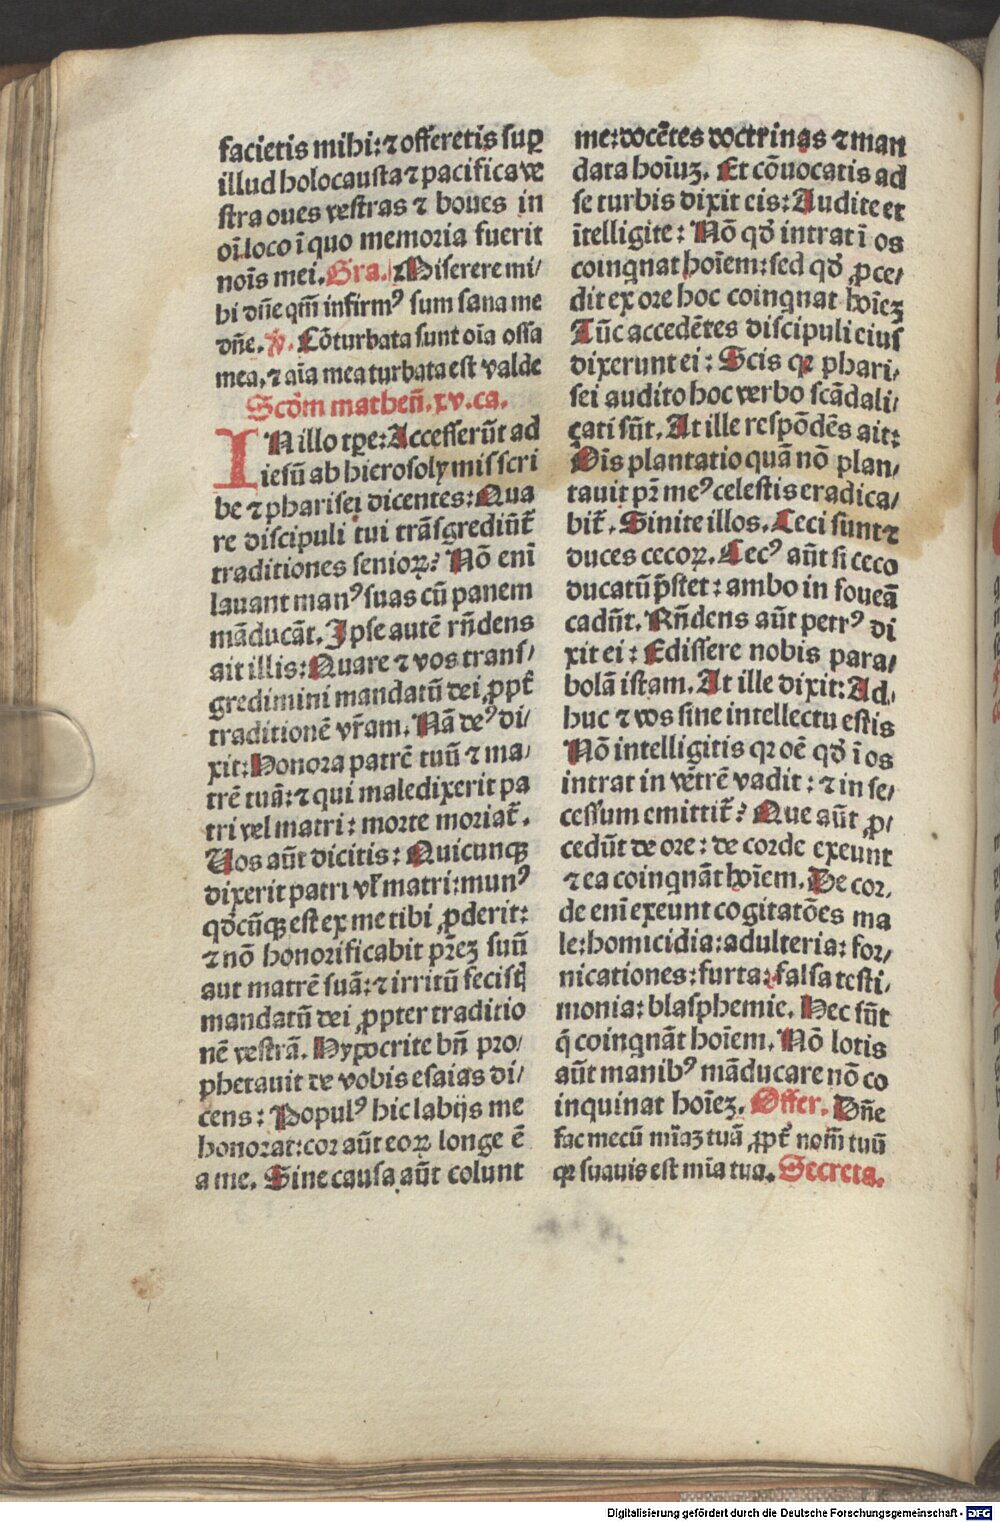 facietis mihi: ⁊ offeretis suꝑ
illud holocausta ⁊ pacifica ve
stra oues vestras ⁊ boues in
oī loco ī quo memoria fuerit
noīs mei. Gra. Miserere mi/
hi dn̄e qm̄ infirmꝰ sum sana me
dn̄e. ℣. Cōturbata sunt oīa ossa
mea, ⁊ aīa mea turbata est valde
Scdm matheū. xv. ca.
IN illo tꝑe: Accesserūt ad
iesū ab hierosolymis scri
be ⁊ pharisei dicentes: Qua
re discipuli tui trāsgrediūt̄
traditiones senioꝝ? Nō enī
lauant manꝰ suas cū panem
māducāt. Ipse autē rn̄dens
ait illis: Quare ⁊ vos transf/
gredimini mandatū dei ꝓpt̄
traditionē vr̄am. Nā deꝰ di/
xit: Honora patrē tuū ⁊ ma/
trē tuā: ⁊ qui maledixerit pa
tri vel matri: morte moriat̄.
Uos aūt dicitis: Quicunqꝫ
dixerit patri vl̄ matri: munꝰ
qd̄cūqꝫ est ex me tibi ꝓderit:
⁊ nō honorificabit pr̄eꝫ suū
aut matrē suā: ⁊ irritū fecistꝭ
mandatū dei ꝓpter traditio
nē vestrā. Hypocrite bn̄ pro/
phetauit de vobis esaias di/
cens: Populꝰ hic labijs me
honorat: cor aūt eoꝝ longe ē
a me. Sine causa aūt colunt
me: docētes doctrinas ⁊ man
data hoīuꝫ. Et cōuocatis ad
se turbis dixit eis: Audite et
ītelligite: Nō qd̄ intrat ī os
coinqnat hoīem: sed qd̄ ꝓce/
dit ex ore hoc coinqnat hoīeꝫ
Tūc accedētes discipuli eius
dixerunt ei: Scis qꝛ phari/
sei audito hoc verbo scādali/
ȥati sūt. At ille respōdēs ait:
Oīs plantatio quā nō plan/
tauit pr̄ meꝰ celestis eradica/
bit̄. Sinite illos. Ceci sunt ⁊
duces cecoꝝ. Cecꝰ aūt si ceco
ducatū p̄stet: ambo in foueā
cadūt. Rn̄dens aūt petrꝰ di
xit ei: Edissere nobis para/
bolā istam. At ille dixit: Ad/
huc ⁊ vos sine intellectu estis
Nō intelligitis qꝛ oē qd̄ ī os
intrat in vētrē vadit: ⁊ in se/
cessum emittit̄? Que aūt ꝓ/
cedūt de ore: de corde exeunt
⁊ ea coinqnāt hoīem. De cor/
de enī exeunt cogitatōes ma
le: homicidia: adulteria: for/
nicationes: furta: falsa testi/
monia: blasphemie. Hec sūt
q̄ coinqnāt hoīem. Nō lotis
aūt manibꝰ māducare nō co
inquinat hoīeꝫ. Offer. Dn̄e
fac mecū mīaꝫ tuā ꝓpt̄ nom̄ tuū
qꝛ suauis est mīa tua. Secreta.
Digitalisierung gefördert durch die Deutsche Forschungsgemeinschaft - DFG